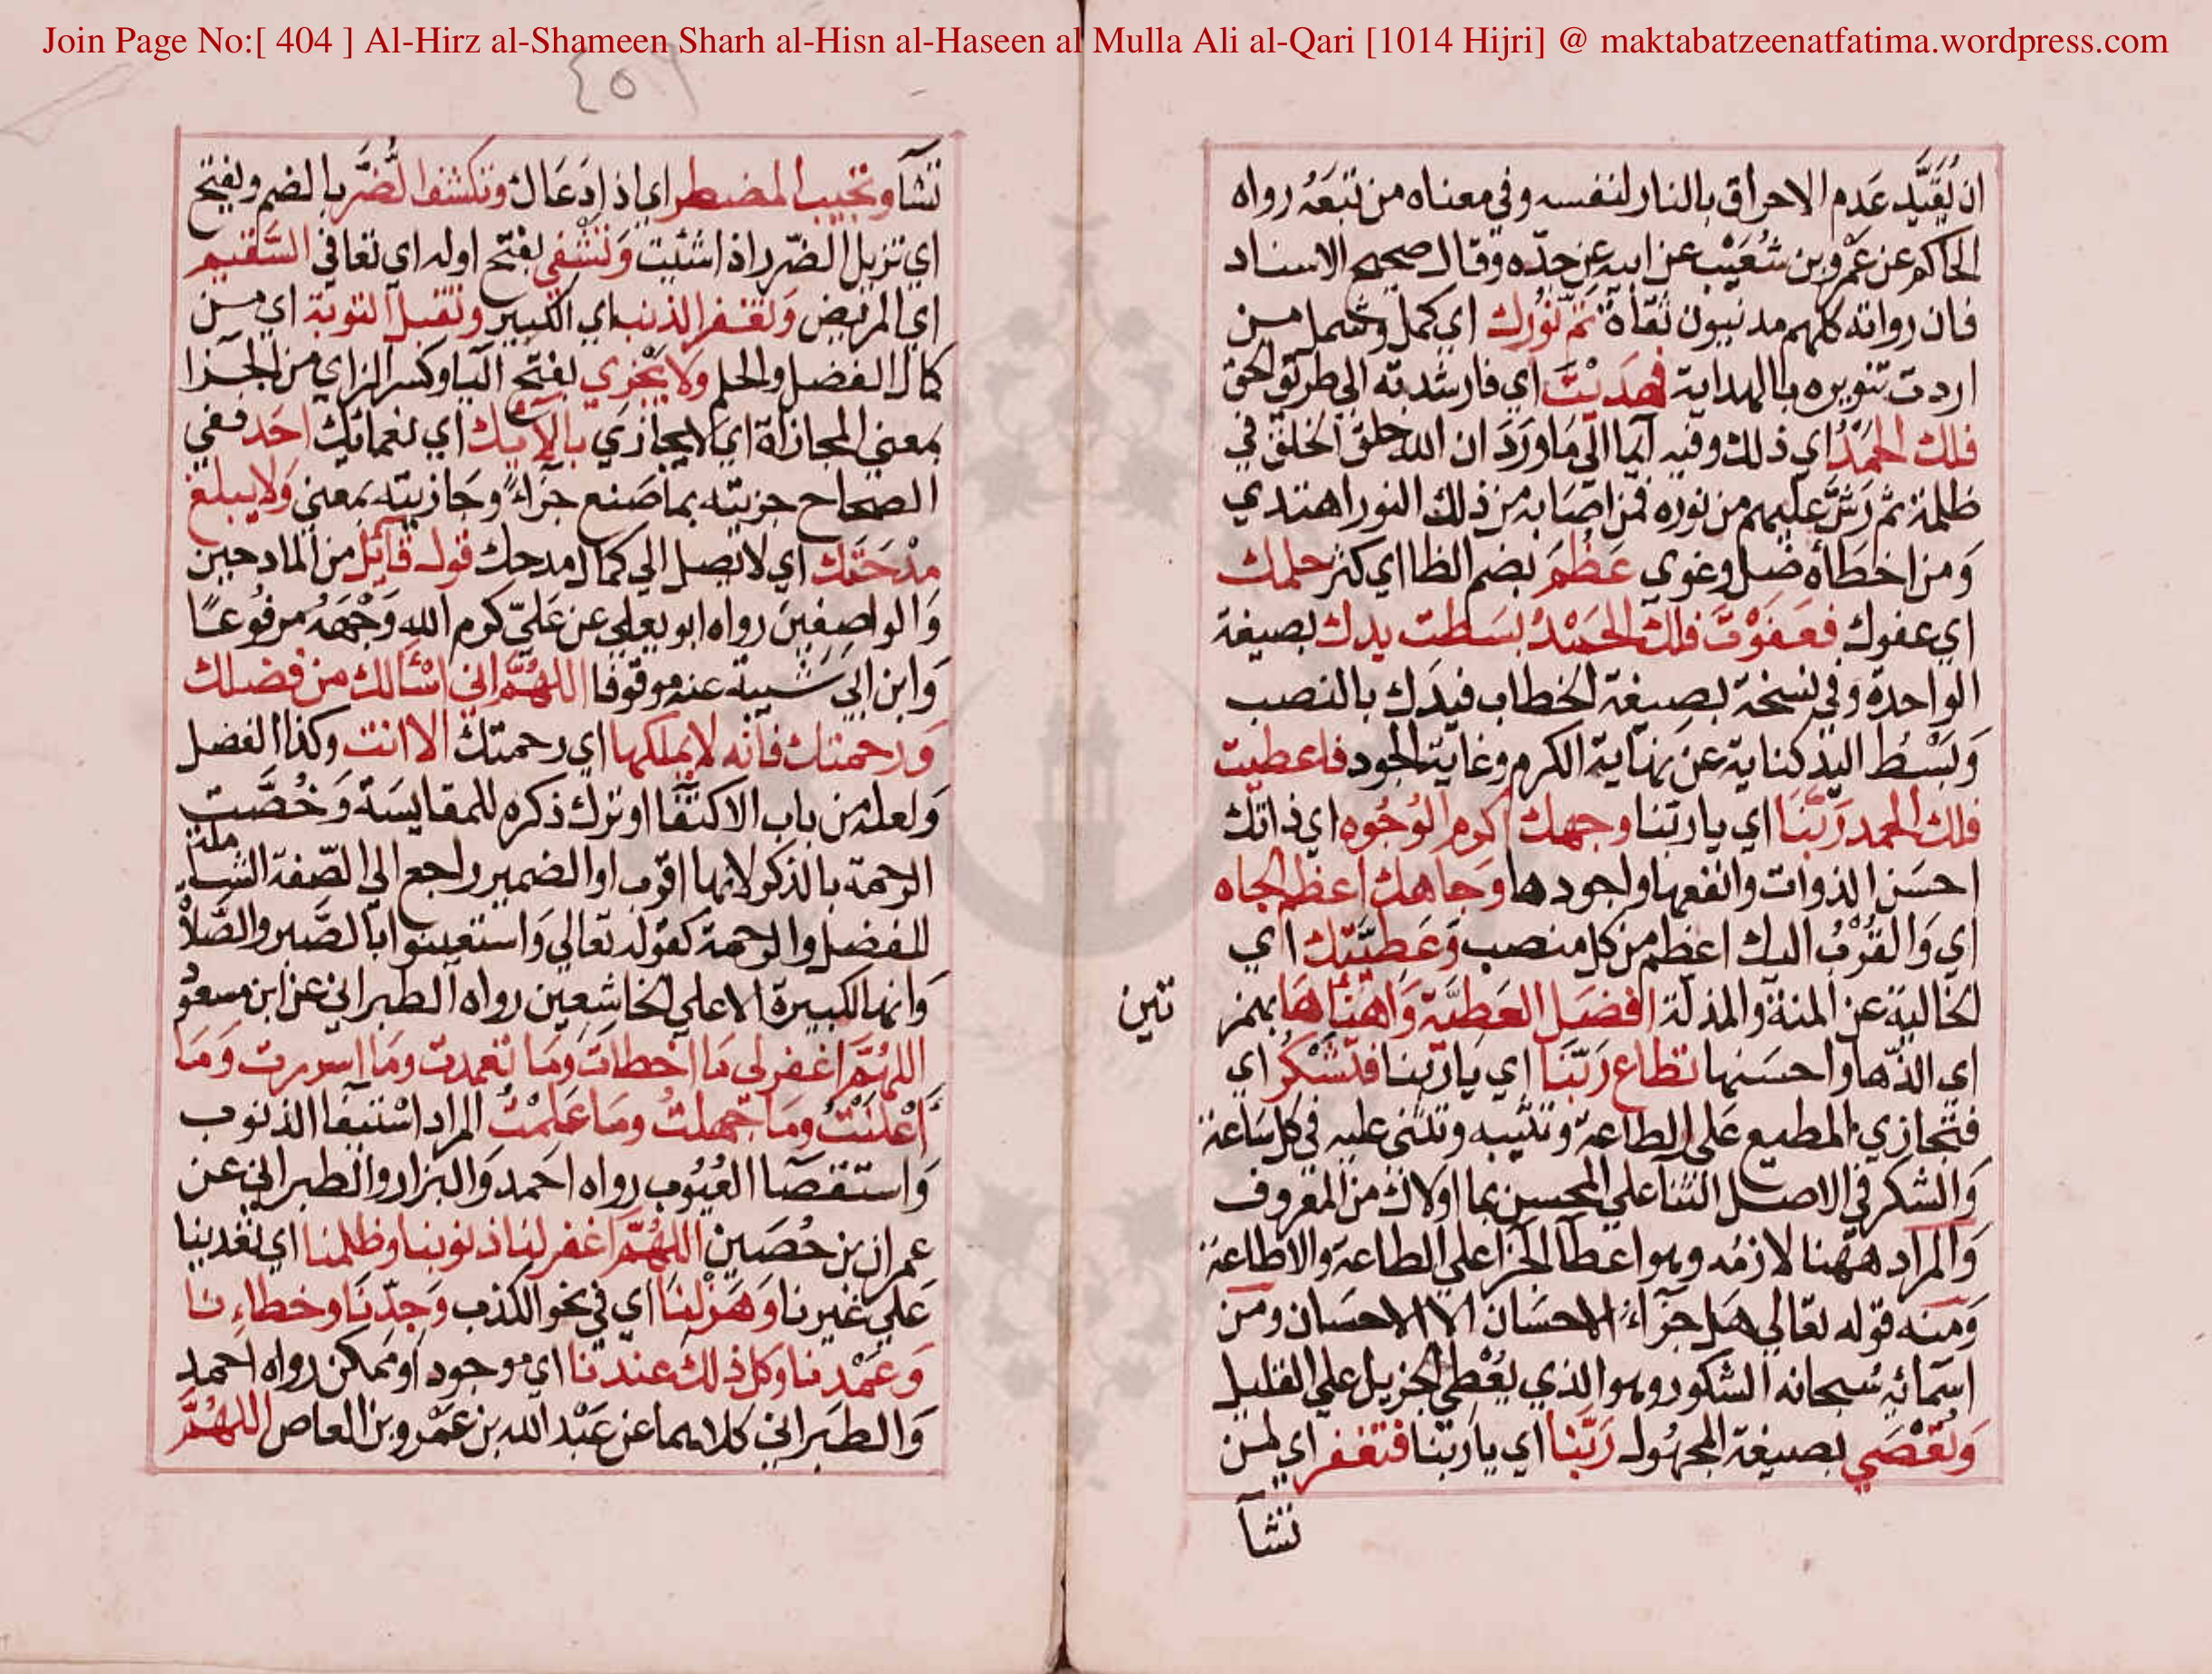 Join Page No:[ 404 ] Al-Hirz al-Shameen Sharh al-Hisn al-Haseen al Mulla Ali al-Qari [1014 Hijri] @ maktabatzeenatfatima.wordpress.com
ان يُقَيَّد عَدم الاحراق بالنار لنفسه وفي معناه من تبعَهُ رواه
الحاكم عن عَمْرو بن شُعَيْب عن ابيه عن جدّه وقال صحيح الاسناد
فان رواته كلهم مدنيون ثقاة تمّ نُورك اي كمل وشمل من
اردت تنويره بالهداية فهَدَيْتَ اي فارشدته الي طريق الحق
فلك الحَمْدُ اي ذلك وفيه ايما الي مَا وَرَدَ ان الله خلق الخلق في
ظلمة ثم رَشَّ عليهم من نوره فمن اصَابه من ذلك النور اهتدي
وَمن اخطَأه ضل وغوي عَظُمَ بضم الظا اي كثر حلمك
اي عفوك فعَفَوْتَ فلك الحَمْدُ بسَطت يدك بصيغة
الواحدة وفي نسخة بصيغة الخطاب فيدَك بالنصب
وَبَسْطُ اليد كناية عن نهاية الكرم وغاية الجود فاعطيت
فلك الحمد رَبّنا اي يا ربّنا وجهك اكرم الوُجُوه اي ذاتك
احسَن الذوات وانفعها واجودها وجَاهك اعظم الجاه
اي وَالقُرْبُ اليك اعظم من كل منصب وَعَطِيَّتك اي
الخالية عن المنة والمذلّة افضَل العَطيَّة وَاهْنَأهَا بهمز
تين
اي الذّها واحسَنها تطاع رَبّنَا اي يَا ربّنا فتشْكُر اي
فتجازي المطيع عَلي الطاعة وتثيبه وتثني عليه في كل سَاعة
وَالشكر في الاصل الثنا علي المحسن بما اولاك من المعروف
وَالمراد ههنا لازمُه وهو اعطا الجزا علي الطاعة والاطاعة
وَمنه قوله تعَالي هَل جزَاءُ الاحسَان الا الاحسَان ومن
اسمائهِ سُبحانه الشكور وهو الذي يُعْطي الجزيل علي القليل
وَتُعْصَي بصيغة المجهُول رَبّنا اي يا ربّنا فتغفر اي لمن
تشآ
٤٥٩
تشآ وتجيب المضطر اي اذا دَعَاك وتكشف الضُّر بالضم ويفتح
اي تزيل الضّر اذا شئت وَتَشْفي بفتح اوله اي تعافي السَّقيم
اي المريض وَتغفر الذنب اي الكبير وتقبل التوبة اي من
كمال الفضل والحلم وَلا يَجْزي بفتح اليا وكسر الزاي من الجزا
بمعني المجازاة اي لا يجازي بالآئك اي نعمائك احَد ففي
الصحاح جزيته بما صَنع جزَاءً وجَازيته بمعني وَلا يبلغ
مدْحَتَك اي لا يصل الي كمال مدحك قول قائل من المادحين
وَالواصِفينَ رواه ابو يعلي عن عَليّ كرم الله وَجْهَهُ مرفُوعًا
وَابن ابي شَيبة عنه موقوفا اللهُمَّ اني اسْألك من فضلك
وَرحمتك فانه لا يملكها اي رحمتك الا انت وكذا الفضل
وَلعله من باب الاكتفا او ترك ذكره للمقايسَة وَخُصَّت
الرحمة بالذكر لانها اقرب او الضمير راجع الي الصّفة الشاملة
للفضل والرحمة كقوله تعَالي وَاستعينوا بالصَّبر والصَّلاة
وَانها لكبيرة الا علي الخاشعِين رواه الطبراني عن ابن مسعود
اللهُمَّ اغفر لي مَا اخطات وَمَا تعمدت ومَا اسررت وَمَا
اَعْلنْتُ ومَا جَهلتُ ومَا عَلمْتُ المراد اسْتيفا الذنوب
وَاستقصا العُيُوب رواه احَمد وَالبزار والطبراني عن
عمران بن حُصَين اللهُمَّ اغفر لنا ذنوبنا وظلمنا اي تعَدينا
عَلي غيرنا وَهَزْلنَا اي في نحو الكذب وَجِدّنَا وخطاءنا
وَعَمْدنا وكل ذلك عندنا اي موجود او ممكن رواه احمد
وَالطبَراني كلاهما عن عَبْد الله بن عَمْرو بن العاص اللهُمَّ